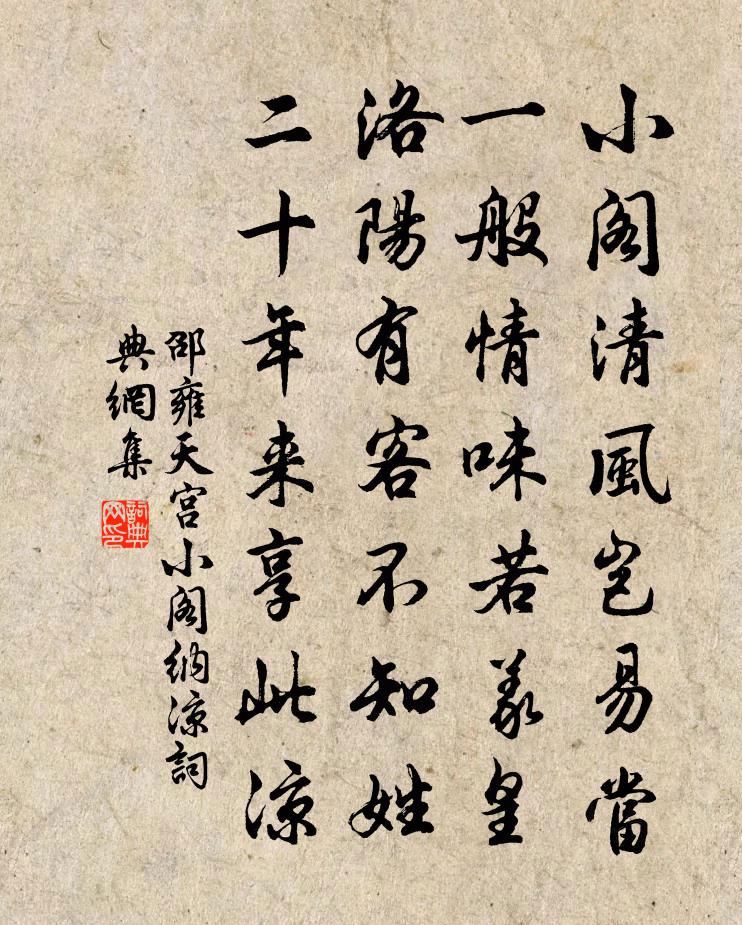 小閣清風豈易當
一般情味若羲皇
洛陽有客不知姓
二十年来享此涼
邵雍天宫小閣納涼詞
典網集
詞典
网印